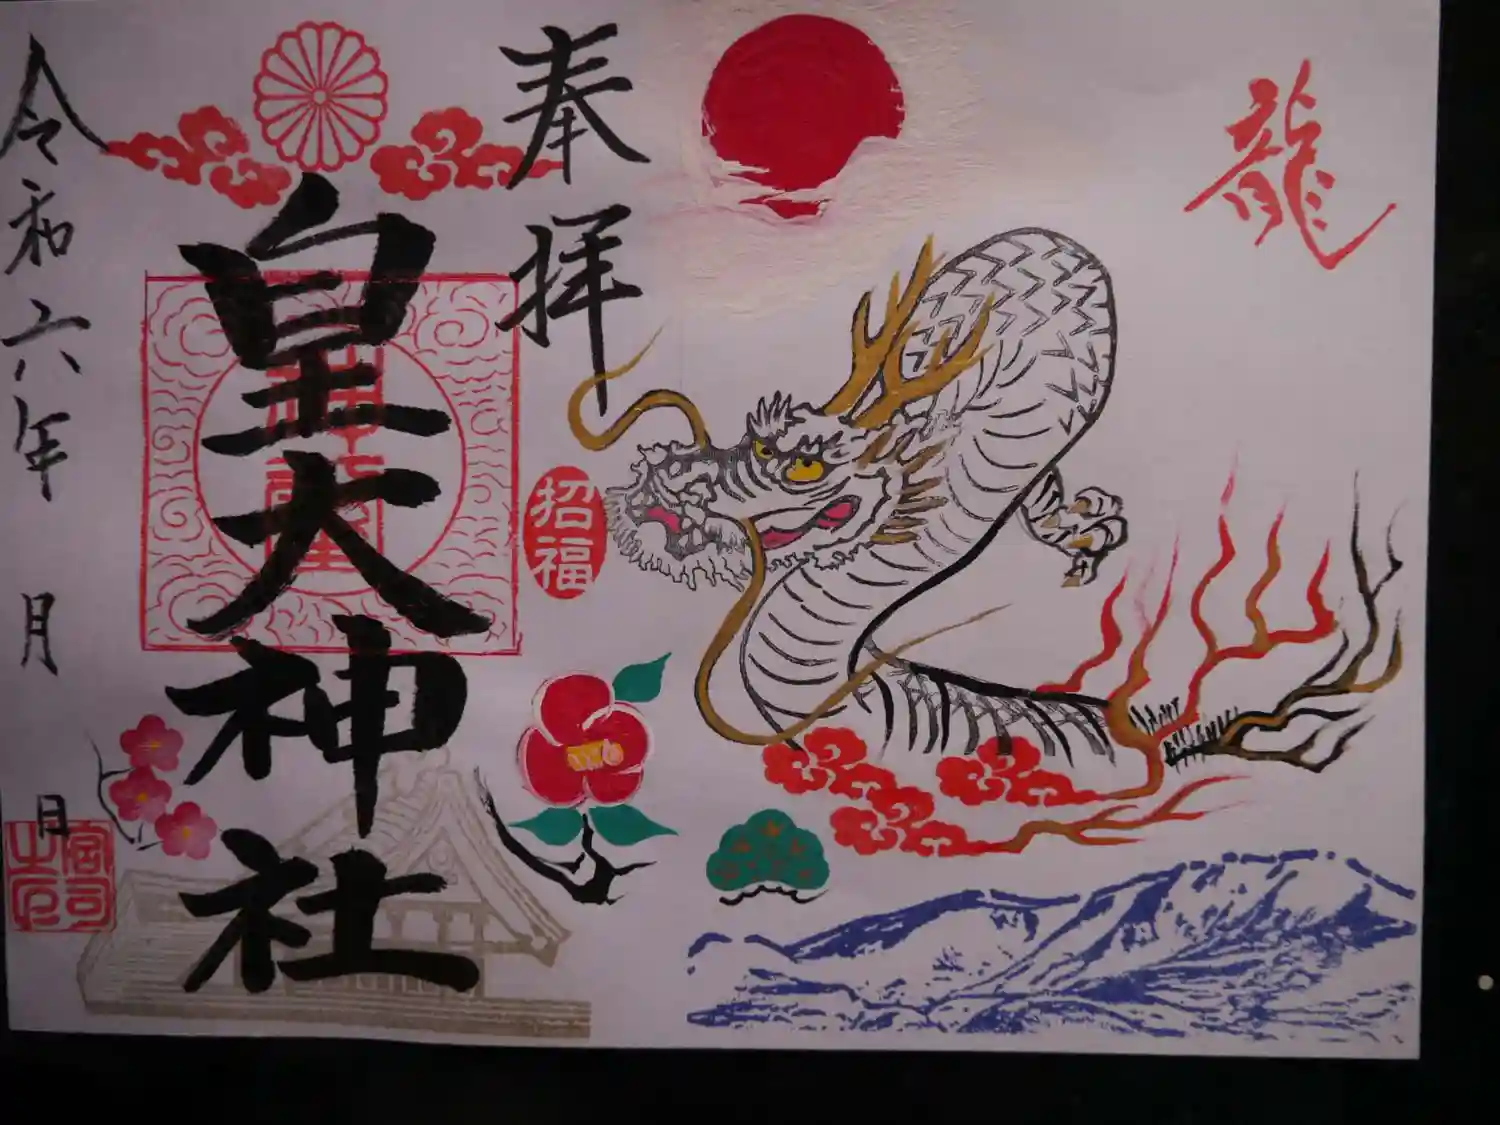 龍
奉拝
招福
皇大神社
令和六年 月 日
宮司之印